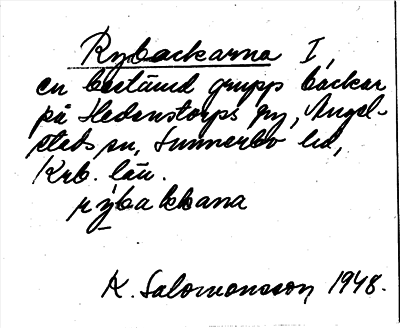 Rybackarna I,
en bestämd grupp backar
på Hedenstorps gy, Angel-
stads sn, Sunnerbo hd,
Krb. län.
rýbakkana
K. Salomonsson 1948.